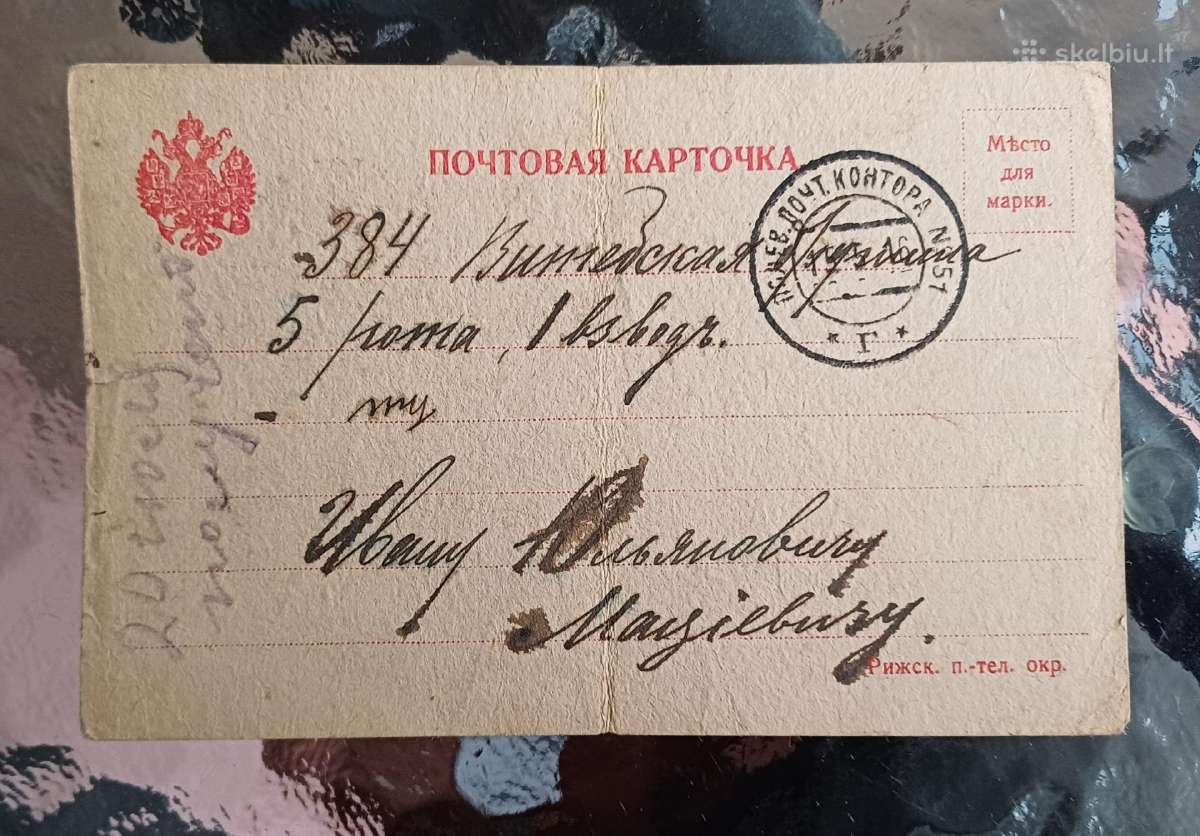 skelbiu.lt
ПОЧТОВАЯ КАРТОЧКА
Мѣсто
для
марки.
ПОЧТ. КОНТОРА № 151
* Г *
384 Витебская дружина
5 рота, 1 взводъ.
Ивану Юльяновичу
Мацкевичу.
Рижск. п.-тел. окр.